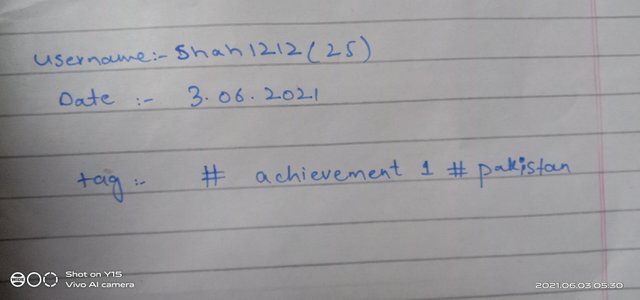 username:- Shah1212(25)
Date :- 3.06.2021
tag:- # achievement 1 # pakistan
Shot on Y15
Vivo AI camera
2021.06.03 05:30